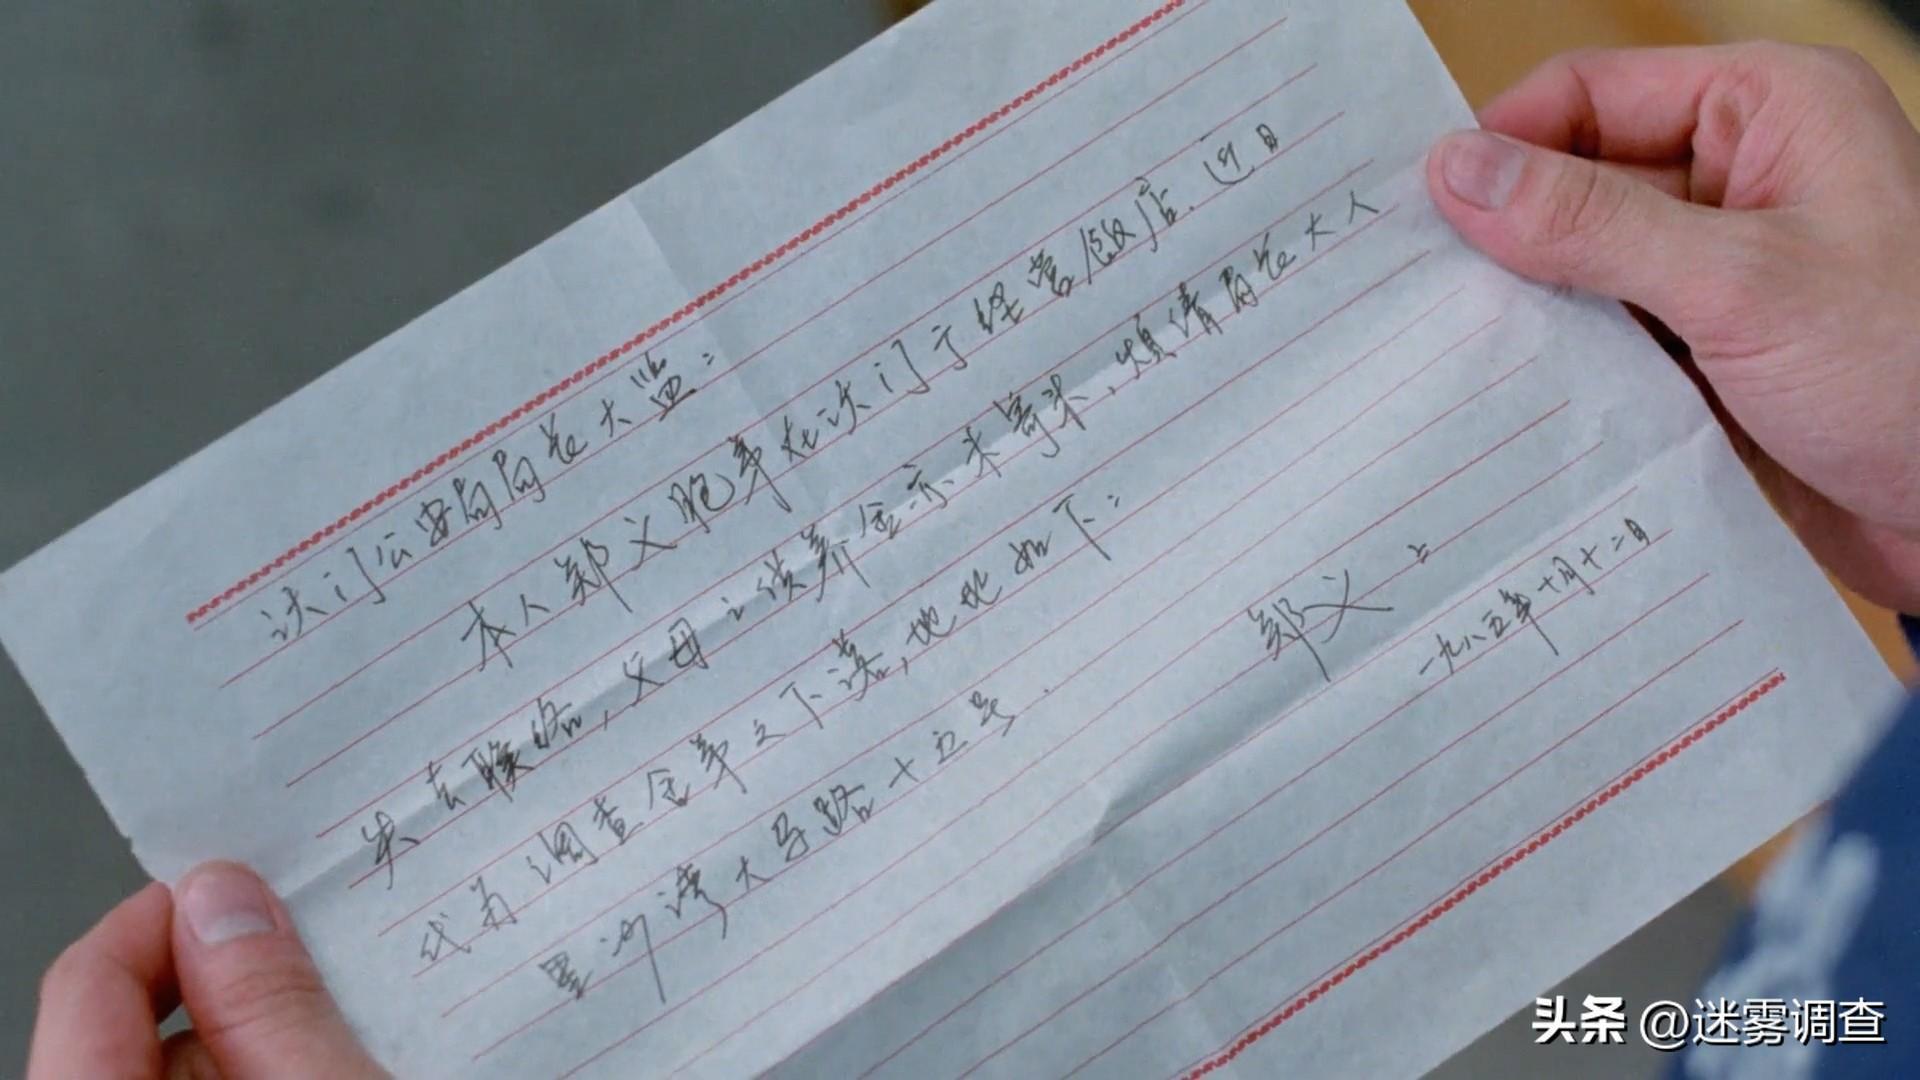 澳门公安局局长大监：
本人郑义胞弟在澳门于经营饭店.近日
失去联络,父母之供养金亦未寄来,烦请局长大人
代为调查舍弟之下落,地址如下：
黑沙湾大马路十五号.
郑义上
一九八五年十月十二日
头条 @迷雾调查